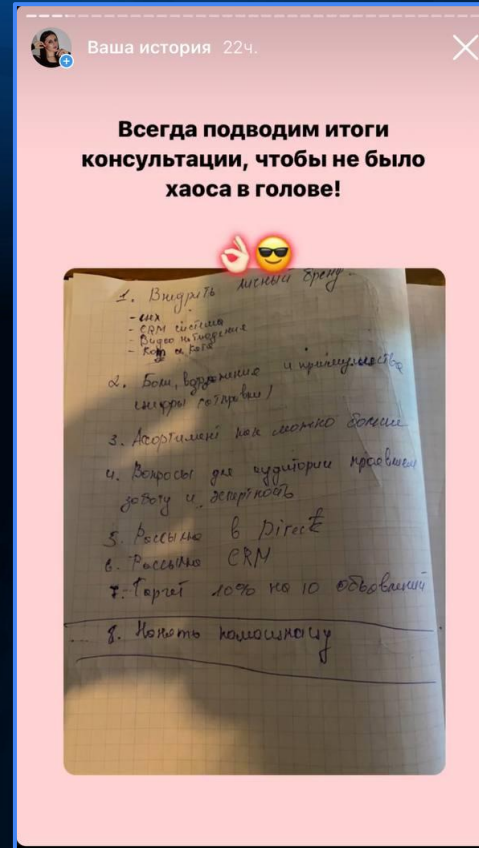 Ваша история 22ч.
Всегда подводим итоги
консультации, чтобы не было
хаоса в голове!
1. Внедрить личный бренд
- CRM система
- Видео наблюдение
2. Боли, и преимущества
3. Асортимент как можно больше
4. Вопросы для аудитории проявляем
заботу и
5. Рассылка в Direct
6. Рассылка CRM
7. Таргет 10% на 10 объявлений
8. Нанять помощницу